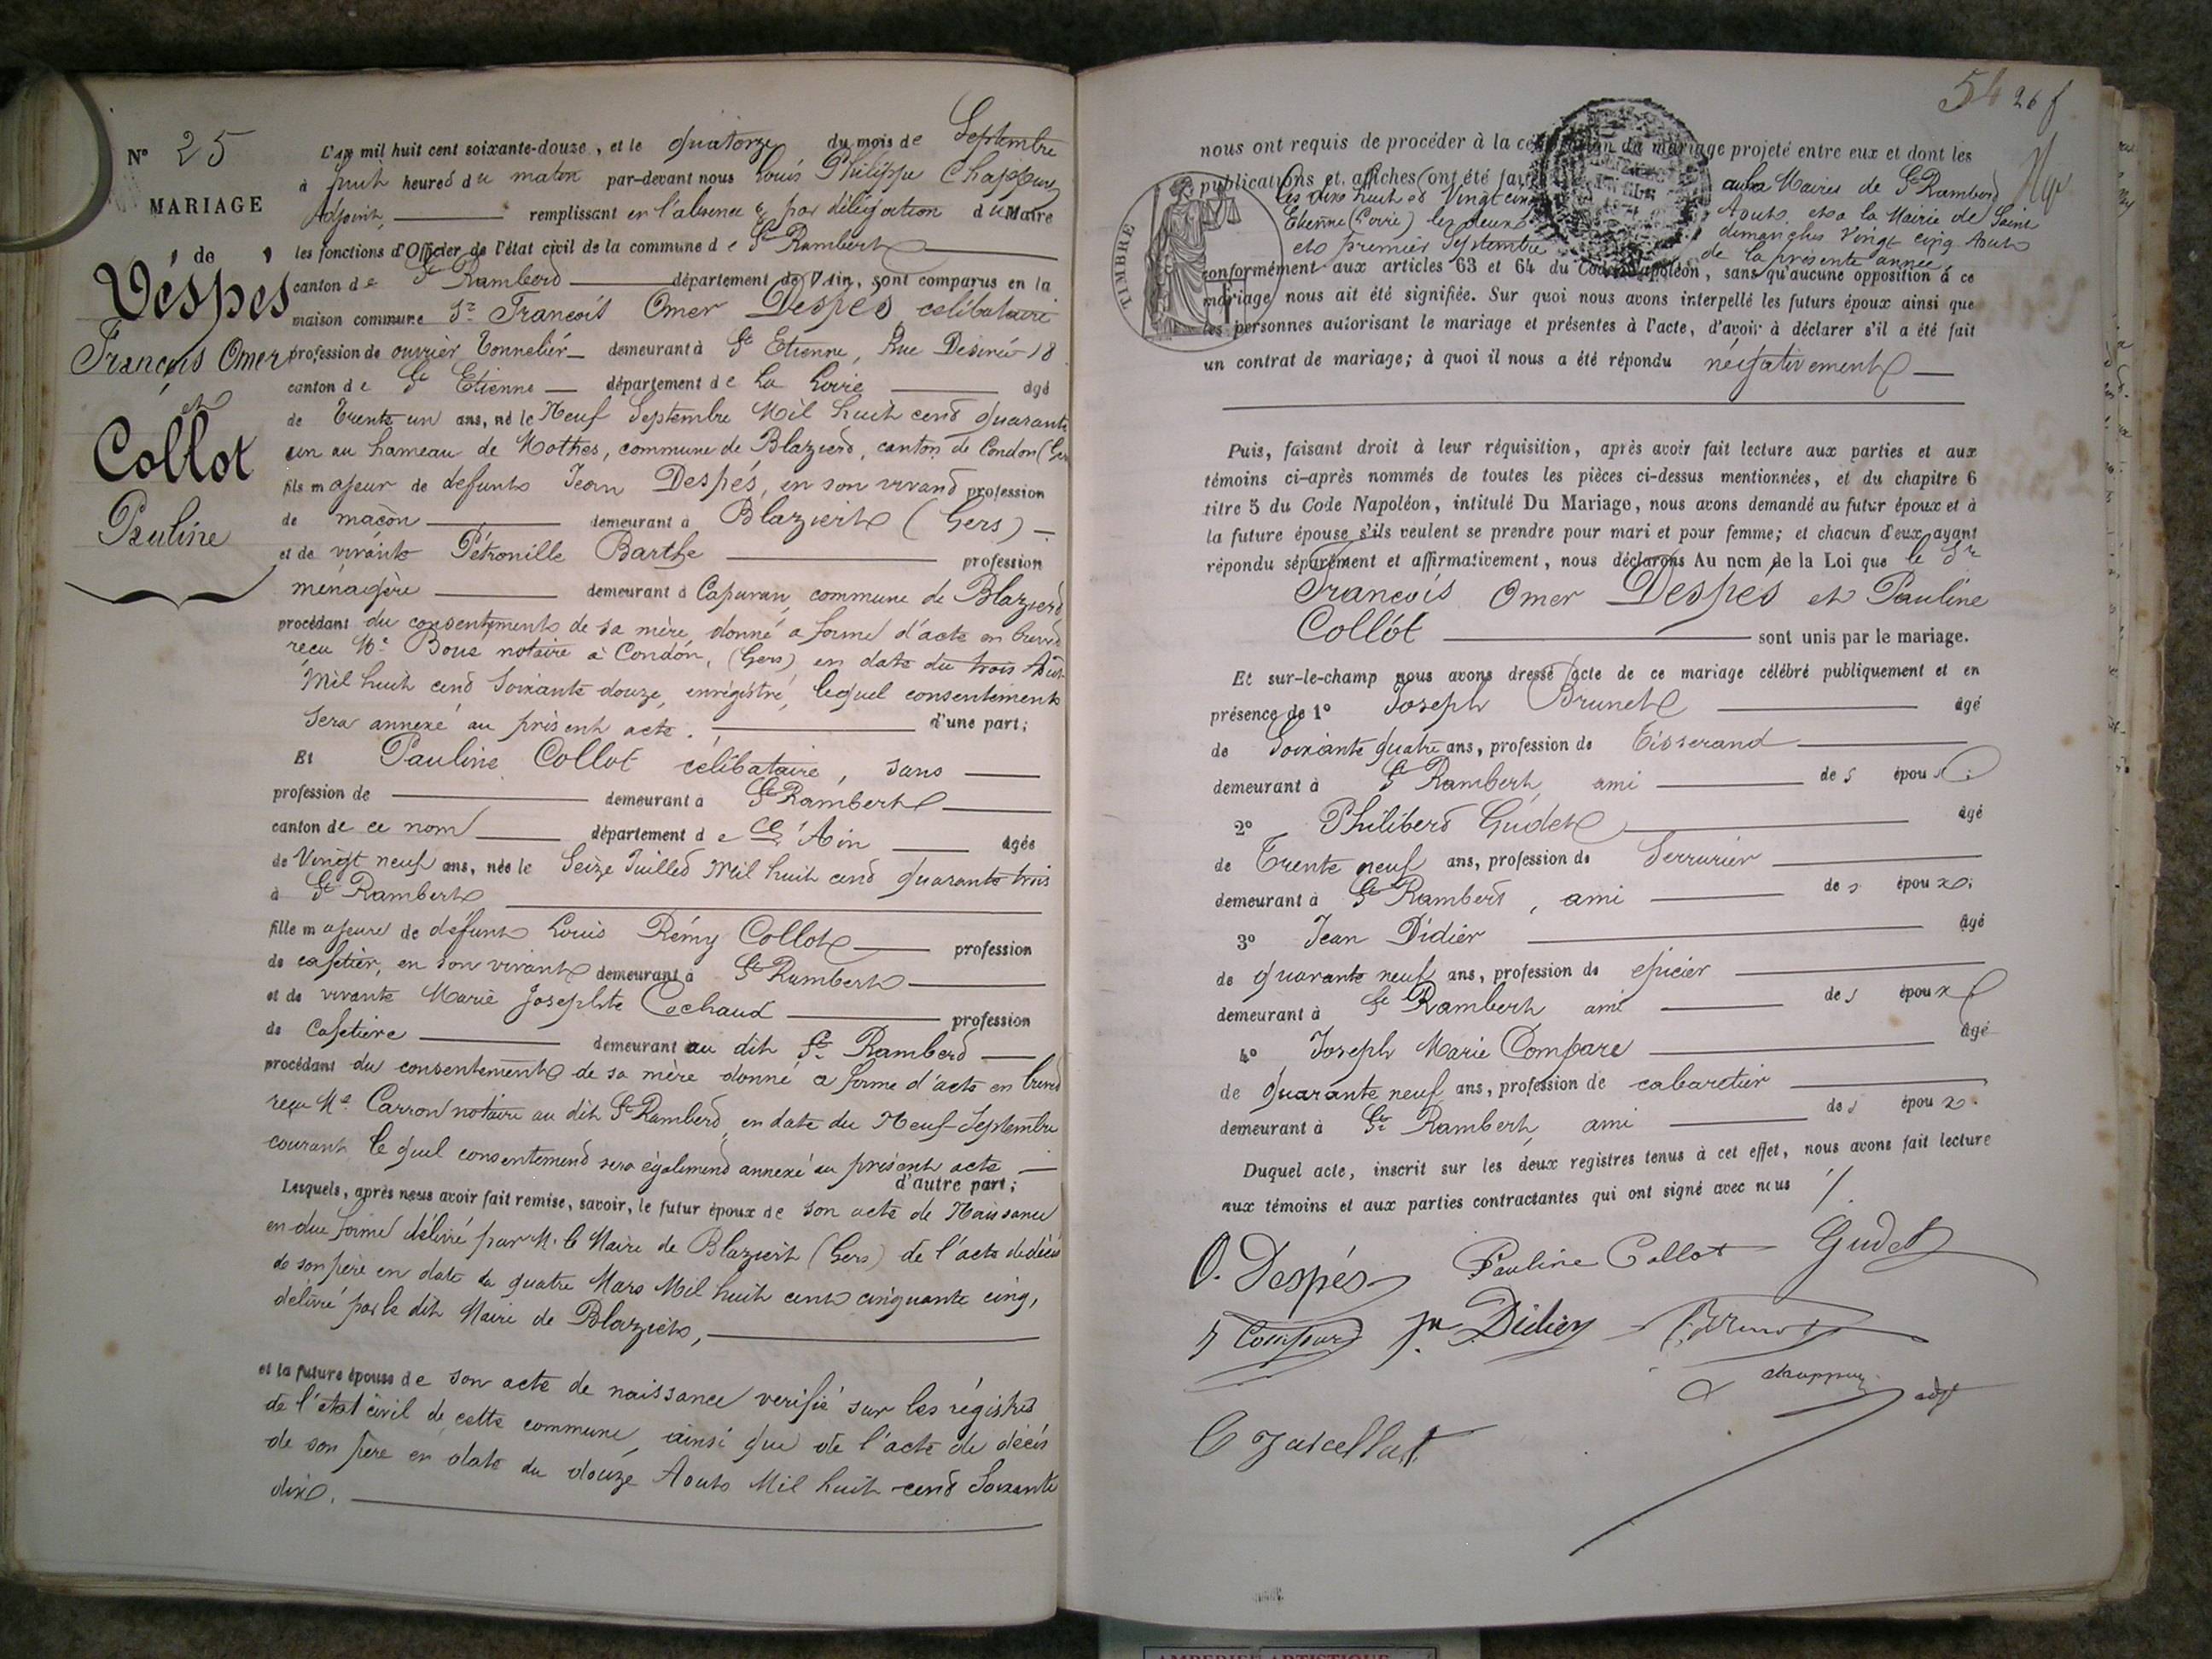 N° 25
MARIAGE
de
Déspés
François Omer
et
Collot
Pauline
L'an mil huit cent soixante-douze, et le quatorze du mois de Septembre
à huit heures du matin par-devant nous Louis Philippe Chappuy
Adjoint, remplissant en l'absence & par délégation du Maire
les fonctions d'Officier de l'état civil de la commune de St Rambert
canton de St Rambert département de l'Ain, sont comparus en la
maison commune Sr François Omer Despés célibataire
profession de ouvrier Tonnelier demeurant à St Etienne, Rue Desirée 18
canton de St Etienne département de La Loire agé
de Trente un ans, né le Neuf Septembre Mil huit cent quarante
un au hameau de Mothes, commune de Blaziert, canton de Condon (Gers
fils majeur de defunt Jean Despés, en son vivant profession
de maçon demeurant à Blaziert (Gers)
et de vivante Pétronille Barthe profession
ménagère demeurant à Capuran, commune de Blaziert
procédant du consentement de sa mère, donné a forme d'acte en brevet
reçu Me Bous notaire à Condon, (Gers) en date du trois Août
Mil huit cent Soixante douze, enrégistré, lequel consentement
sera annexé au présent acte. d'une part;
Et Pauline Collot célibataire, sans
profession de demeurant à St Rambert
canton de ce nom département de l'Ain agée
de Vingt neuf ans, née le Seize Juillet Mil huit cent quarante trois
à St Rambert
fille majeure de défunt Louis Rémy Collot profession
de cafetier, en son vivant demeurant à St Rambert
et de vivante Marie Josephte Cochaud profession
de Cafetière demeurant au dit St Rambert
procédant du consentement de sa mère donné a forme d'acte en brevet
reçu Me Carron notaire au dit St Rambert, en date du Neuf Septembre
courant le quel consentement sera également annexé au présent acte
d'autre part;
Lesquels, après nous avoir fait remise, savoir, le futur époux de son acte de Naissance
en due forme délivré par M. le Maire de Blaziert (Gers) de l'acte de décès
de son père en date du quatre Mars Mil huit cent cinquante cinq,
délivré par le dit Maire de Blaziert,
et la future épouse de son acte de naissance verifié sur les régistres
de l'état civil de cette commune, ainsi que de l'acte de décès
de son père en date du douze Aout Mil huit cent Soixante
dix.
54 26 f
nous ont requis de procéder à la célébration du mariage projeté entre eux et dont les
publications et affiches ont été faites aux Maires de St Rambert
les dix huit et Vingt cinq Aout et a la Mairie de Saint
Etienne (Loire) les deux dimanches Vingt cinq Aout
et premier Septembre de la présente année
TIMBRE
conformément aux articles 63 et 64 du Code Napoléon, sans qu'aucune opposition à ce
mariage nous ait été signifiée. Sur quoi nous avons interpellé les futurs époux ainsi que
les personnes autorisant le mariage et présentes à l'acte, d'avoir à déclarer s'il a été fait
un contrat de mariage; à quoi il nous a été répondu négativement
Puis, faisant droit à leur réquisition, après avoir fait lecture aux parties et aux
témoins ci-après nommés de toutes les pièces ci-dessus mentionnées, et du chapitre 6
titre 5 du Code Napoléon, intitulé Du Mariage, nous avons demandé au futur époux et à
la future épouse s'ils veulent se prendre pour mari et pour femme; et chacun d'eux ayant
répondu séparément et affirmativement, nous déclarons Au nom de la Loi que le Sr
François Omer Despés et Pauline
Collot sont unis par le mariage.
Et sur-le-champ nous avons dressé acte de ce mariage célébré publiquement et en
présence de 1° Joseph Brunet âgé
de Soixante quatre ans, profession de Tisserand
demeurant à St Rambert, ami des époux;
2° Philibert Gudet âgé
de Trente neuf ans, profession de Serrurier
demeurant à St Rambert, ami des époux;
3° Jean Didier âgé
de quarante neuf ans, profession de epicier
demeurant à St Rambert ami des époux
4° Joseph Marie Compare âgé
de quarante neuf ans, profession de cabaretier
demeurant à St Rambert, ami des époux.
Duquel acte, inscrit sur les deux registres tenus à cet effet, nous avons fait lecture
aux témoins et aux parties contractantes qui ont signé avec nous
O. Despés Pauline Collot Gudet
J Compare Jn Didier Brunet
chappuy adjt